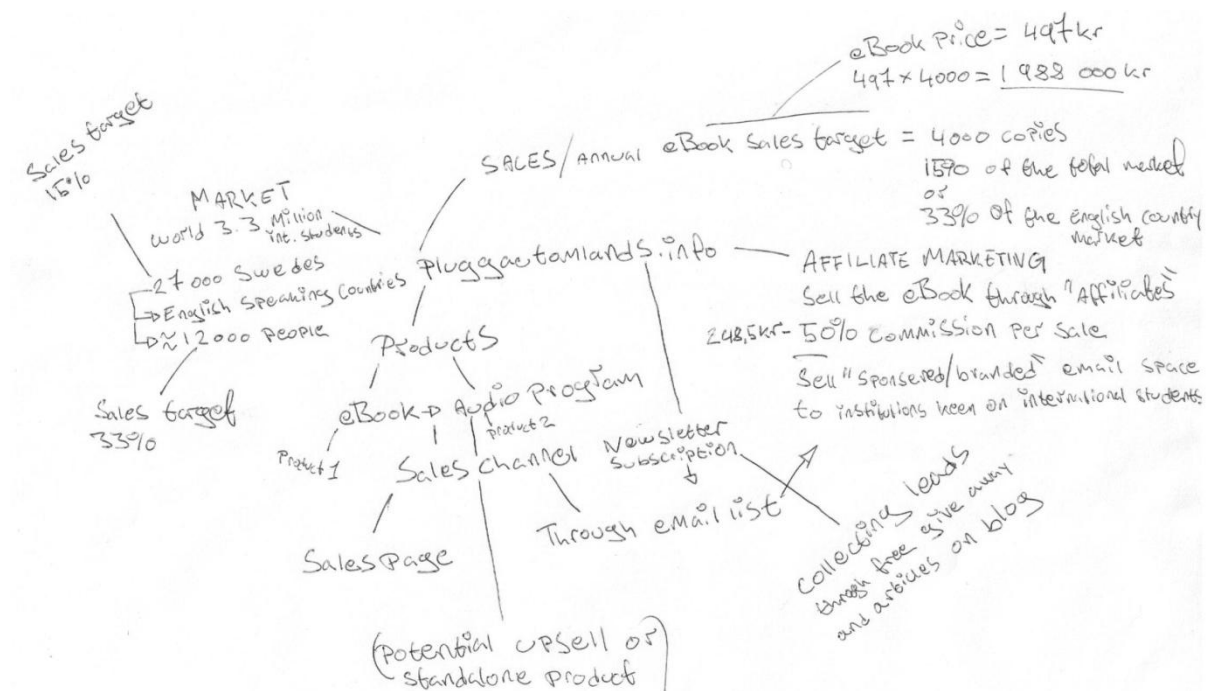 eBook Price = 497kr
497 x 4000 = 1 988 000 kr
Sales target
15%
SALES/Annual
eBook Sales target = 4000 copies
15% of the total market
or
33% of the English country
market
MARKET
World 3.3 Million
int. Students
27 000 Swedes
English Speaking Countries
≈ 12000 people
Sales target
33%
Pluggautomlands.info
AFFILIATE MARKETING
Sell the eBook through "Affiliates"
248,5kr- 50% Commission per Sale
Sell "Sponsered/branded" email space
to institutions keen on international students.
Products
eBook
Audio Program
Product 1
product 2
Sales Channel
Newsletter
Subscription
Sales Page
Through email list
Collecting leads
through free give away
and articles on blog
(Potential upsell or
standalone product)